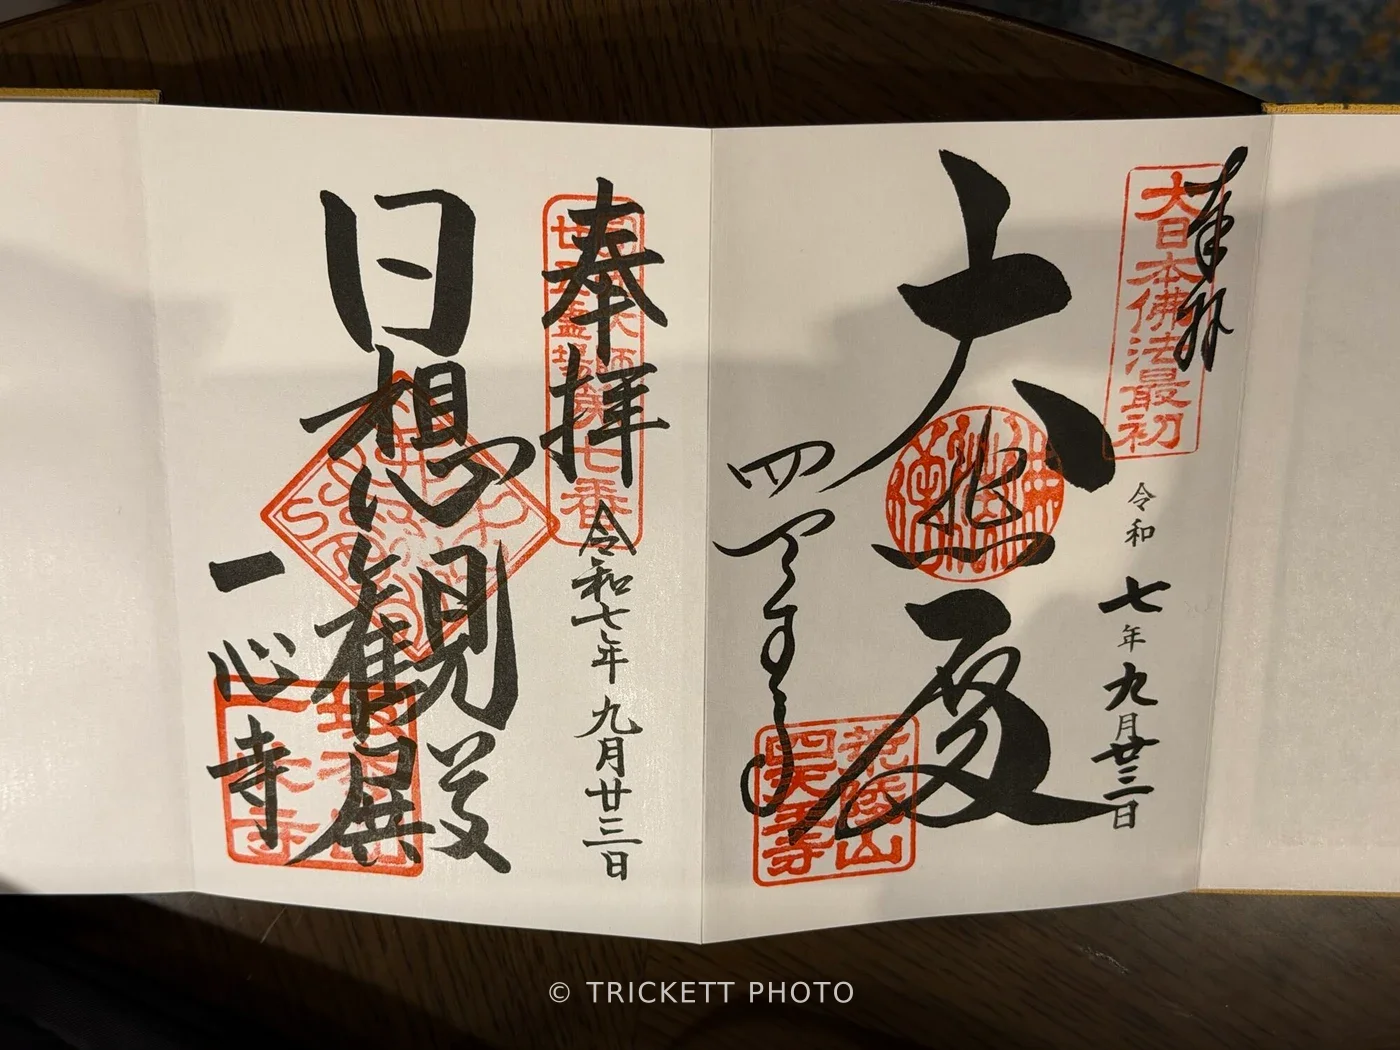 奉拝
大日本佛法最初
令和 七年 九月廿三日
大悲
四天王寺
荒陵山
四天王寺
奉拝
七番
令和七年 九月廿三日
日想観殿
一心寺
© TRICKETT PHOTO